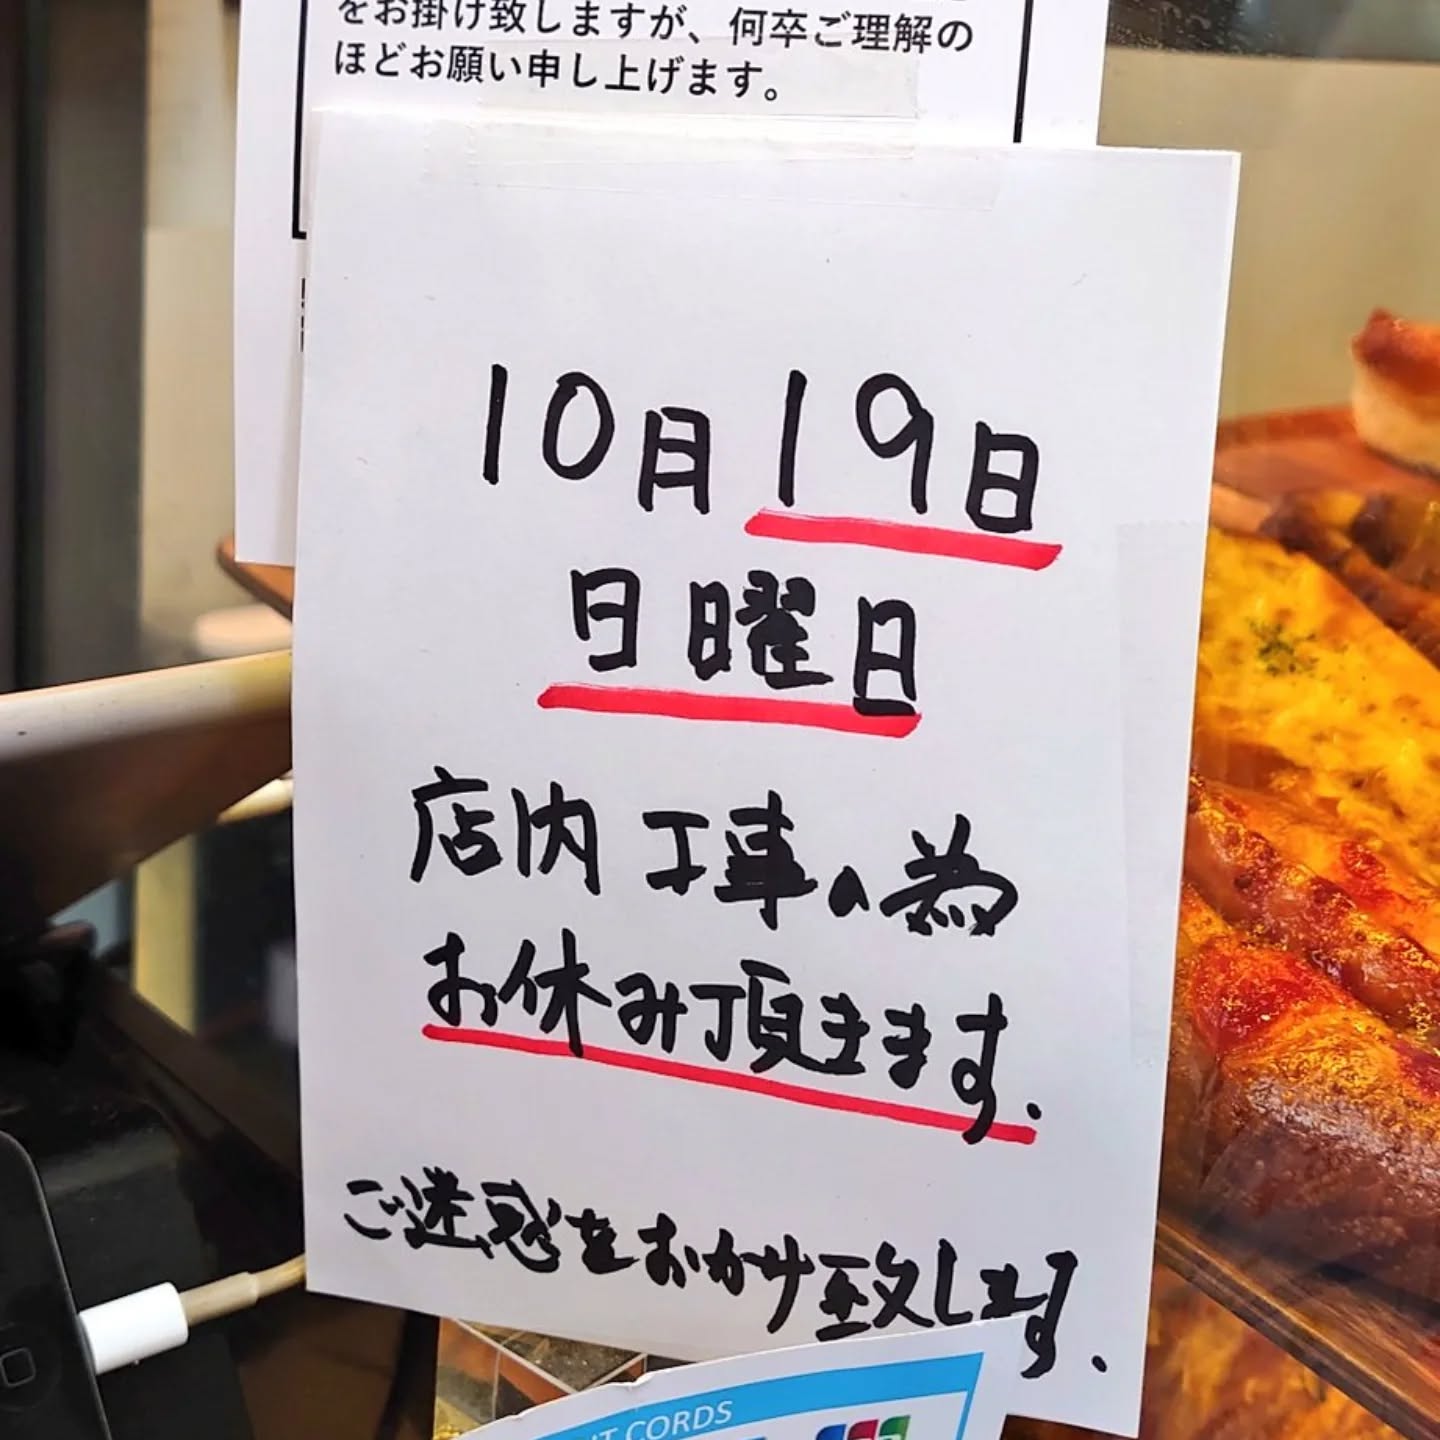 をお掛け致しますが、何卒ご理解の
ほどお願い申し上げます。
10月19日
日曜日
店内工事の為
お休み頂きます.
ご迷惑をおかけ致します.
CORDS